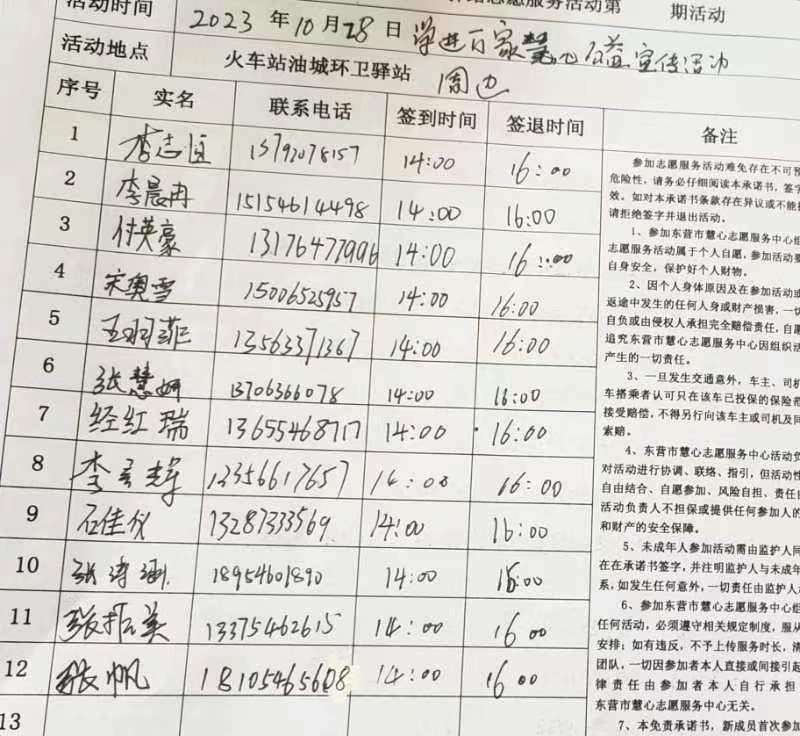 志愿服务活动第 期活动
活动时间 2023 年 10 月 28 日 学进百家 宣传活动
活动地点 火车站油城环卫驿站 周边
序号 实名 联系电话 签到时间 签退时间 备注
1 李志恒 13792078157 14:00 16:00
2 李晨冉 15154614498 14:00 16:00
3 付英豪 13176477996 14:00 16:00
4 宋奥雪 15006525957 14:00 16:00
5 王羽菲 13563371367 14:00 16:00
6 张慧妍 13706366078 14:00 16:00
7 经红瑞 13655468717 14:00 16:00
8 李 13356617657 14:00 16:00
9 石佳仪 13287333569 14:00 16:00
10 张涛涵 18954601890 14:00 16:00
11 张振美 13375462615 14:00 16 00
12 张帆 18105465608 14:00 16 00
13
参加志愿服务活动难免存在不可预
危险性，请务必仔细阅读本承诺书，签字
效。如对本承诺书条款存在异议或不能接
请拒绝签字并退出活动。
1、参加东营市慧心志愿服务中心组
志愿服务活动属于个人自愿，参加活动要
自身安全，保护好个人财物。
2、因个人身体原因及在参加活动或
返途中发生的任何人身或财产损害，一切
自负或由侵权人承担完全赔偿责任，自愿
追究东营市慧心志愿服务中心因组织活
产生的一切责任。
3、一旦发生交通意外，车主、司机
车搭乘者认可只在该车已投保的保险范
接受赔偿，不得另行向该车主或司机及同
索赔。
4、东营市慧心志愿服务中心活动负
对活动进行协调、联络、指引，但活动性
自由结合、自愿参加、风险自担、责任自
活动负责人不担保或提供任何参加人的
和财产的安全保障。
5、未成年人参加活动需由监护人同
在在承诺书签字，并注明监护人与未成年
系，如发生任何意外，一切责任由监护人
6、参加东营市慧心志愿服务中心组
任何活动，必须遵守相关规定制度，服从
安排；如有违反，不予上传服务时长，清
团队，一切因参加者本人直接或间接引起
律责任由参加者本人自行承担
东营市慧心志愿服务中心无关。
7、本免责承诺书，新成员首次参加